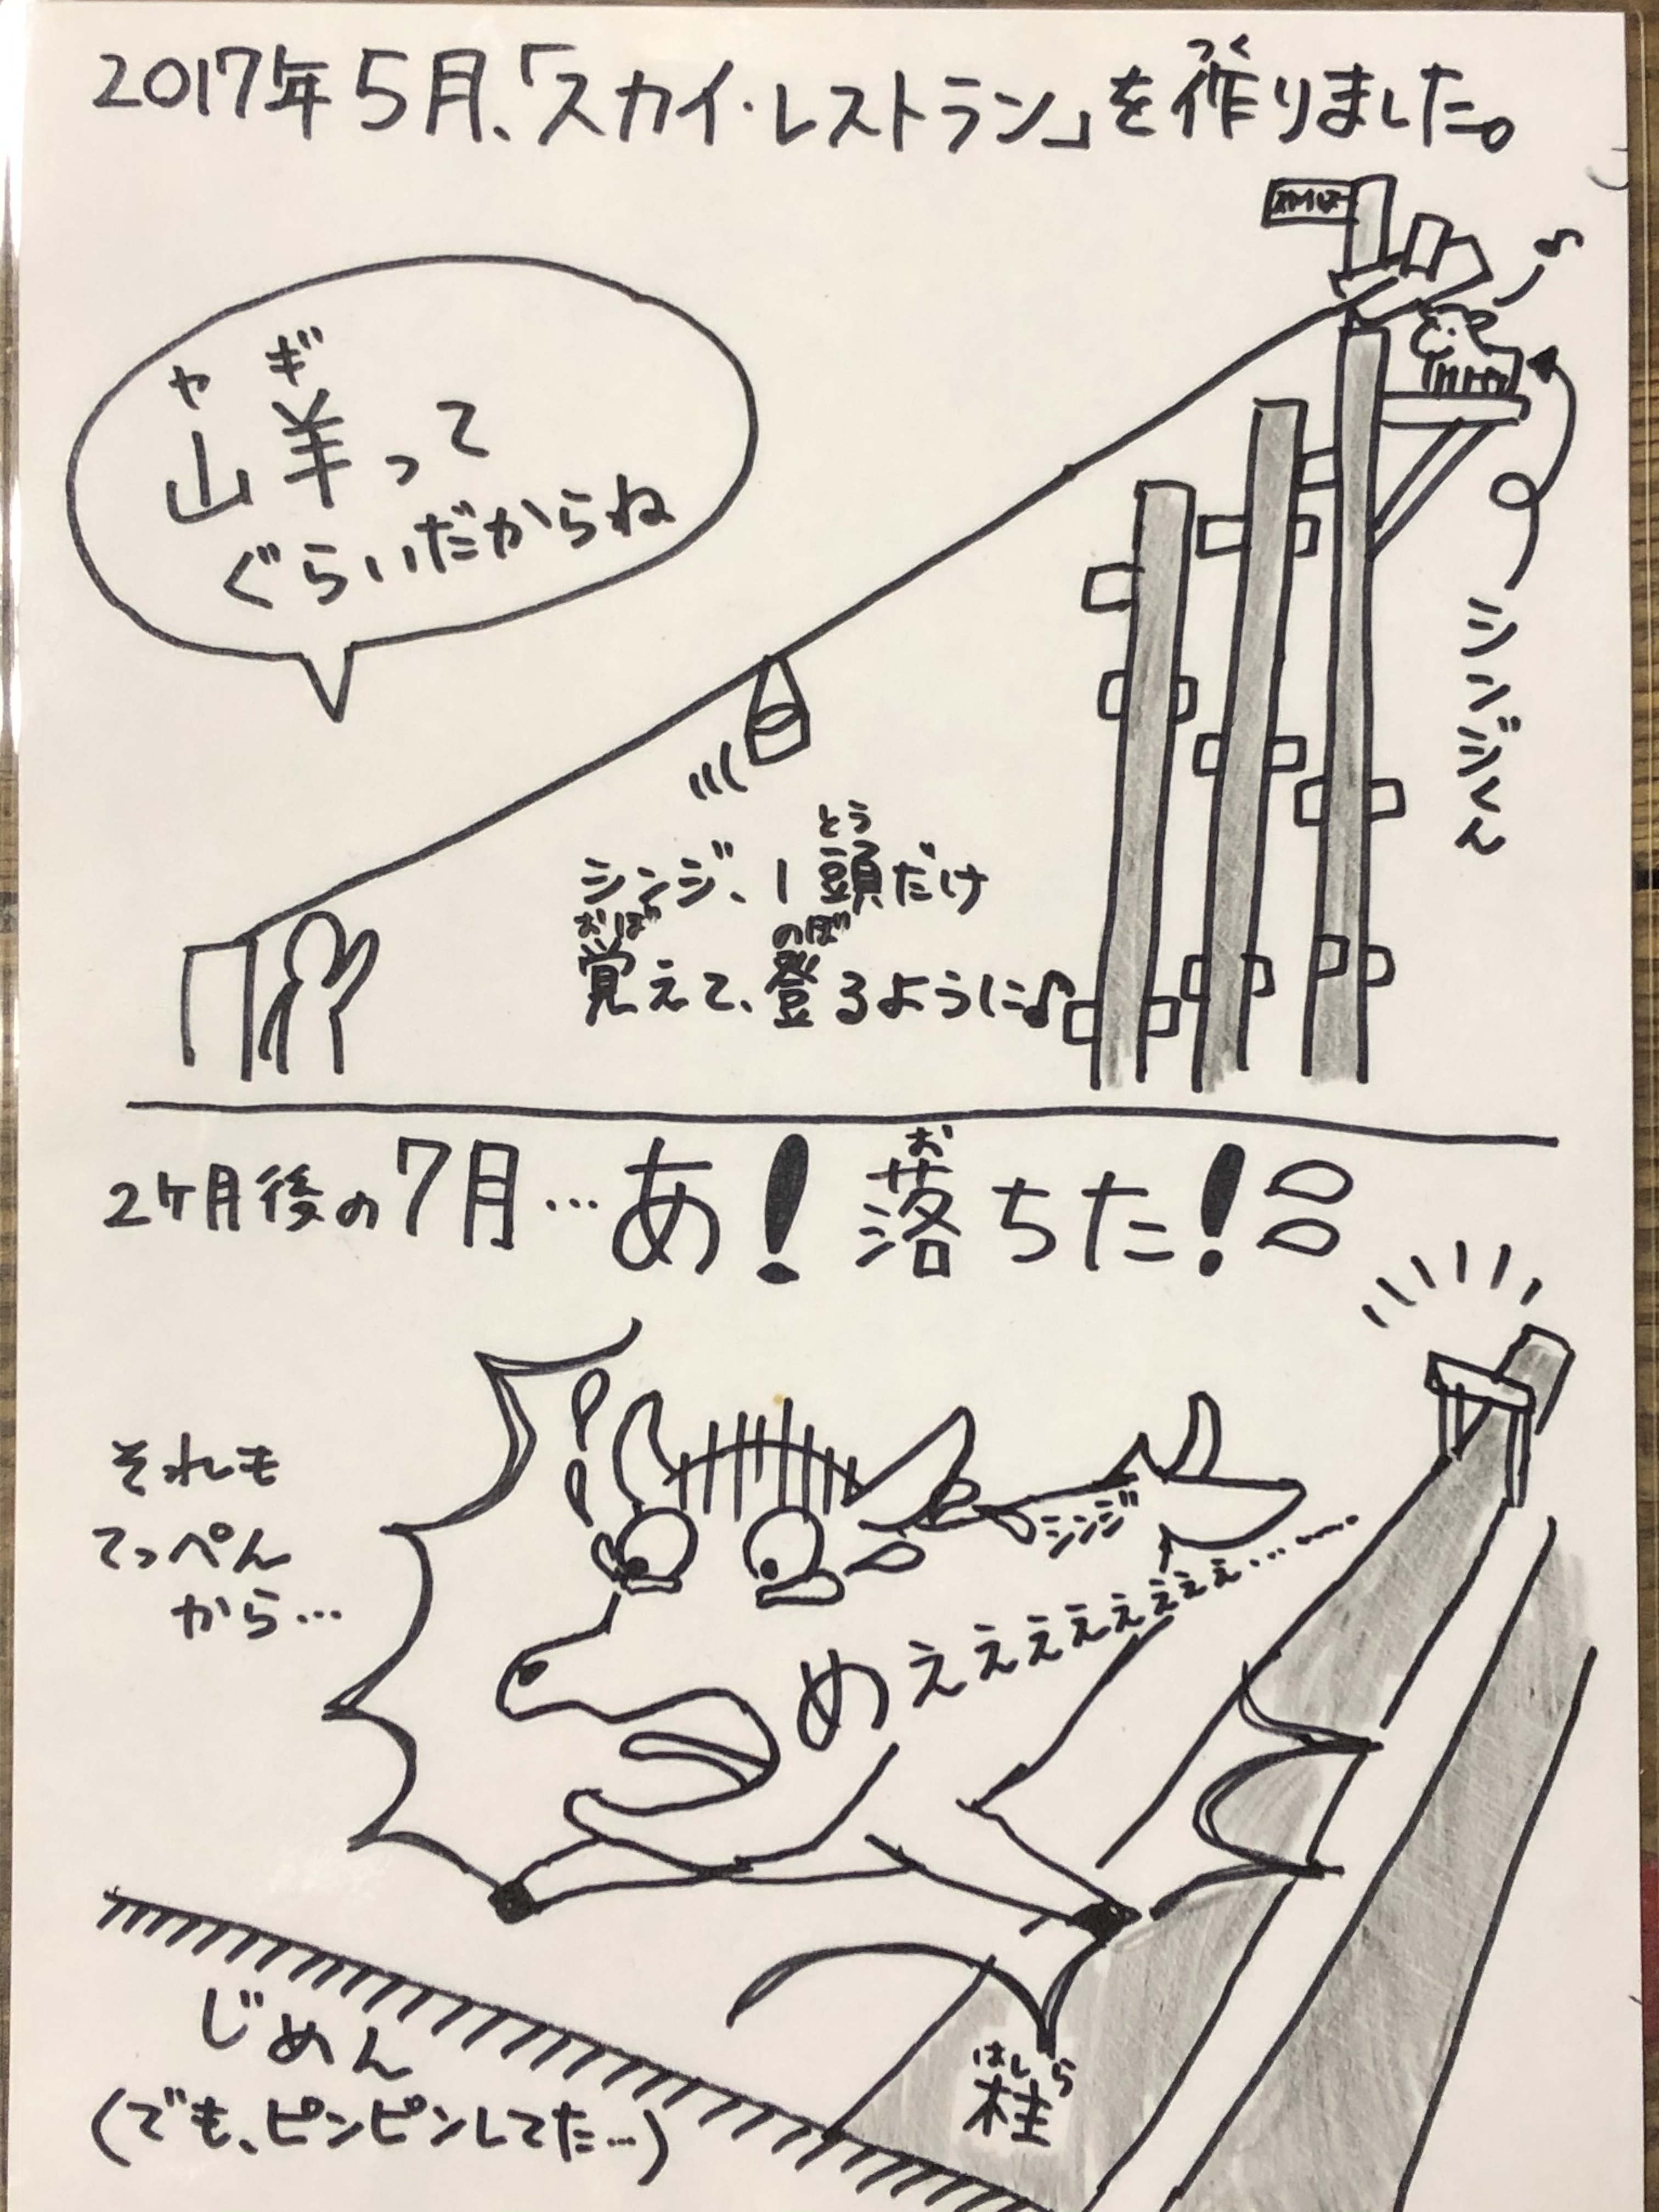 2017年5月、「スカイ・レストラン」を作りました。
つく
ヤギ
山羊って
ぐらいだからね
シンジくん
シンジ、1頭だけ
とう
覚えて、登るように♪
おぼ
のぼ
2ヶ月後の7月…あ!落ちた!
お
それも
てっぺん
から…
シンジ
めぇぇぇぇぇぇぇぇ……
じめん
(でも、ピンピンしてた…)
はしら
柱